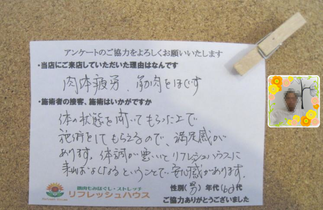 アンケートのご協力をよろしくお願いいたします
・当店にご来店していただいた理由はなんですか
肉体疲労、筋肉をほぐす
・施術者の接客、施術はいかがですか
体の状態を聞いてもらった上で
施術をしてもらえるので、満足感が
あります。体調が悪いとリフレッシュハウスに
来ればなおせるということで安心感があります。
筋肉もみほぐし・ストレッチ
リフレッシュハウス
性別(男)年代(60)代
ご協力ありがとうございました